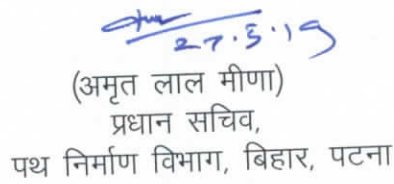 27.5.19
(अमृत लाल मीणा)
प्रधान सचिव,
पथ निर्माण विभाग, बिहार, पटना